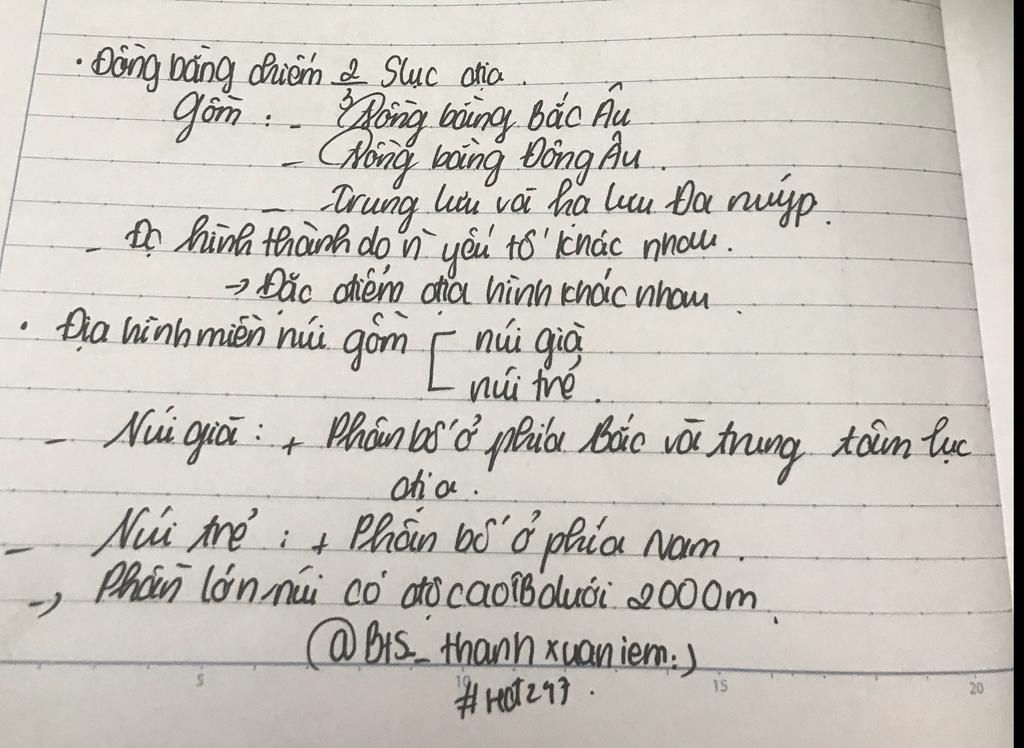 · Đồng bằng chiếm 2/3 S lục địa.
Gồm : - Đồng bằng Bắc Âu
- Đồng bằng Đông Âu.
- Trung lưu và hạ lưu Đa nuýp.
- Đc hình thành do n` yếu tố khác nhau.
→ Đặc điểm địa hình khác nhau.
· Địa hình miền núi gồm [ núi già
núi trẻ.
- Núi già : + Phân bố ở phía Bắc và trung tâm lục
địa.
- Núi trẻ : + Phân bố ở phía Nam.
→ Phần lớn núi có độ cao TB dưới 2000m.
(@BtS_thanhxuaniem:)
5 10 15 20
#HOT247.